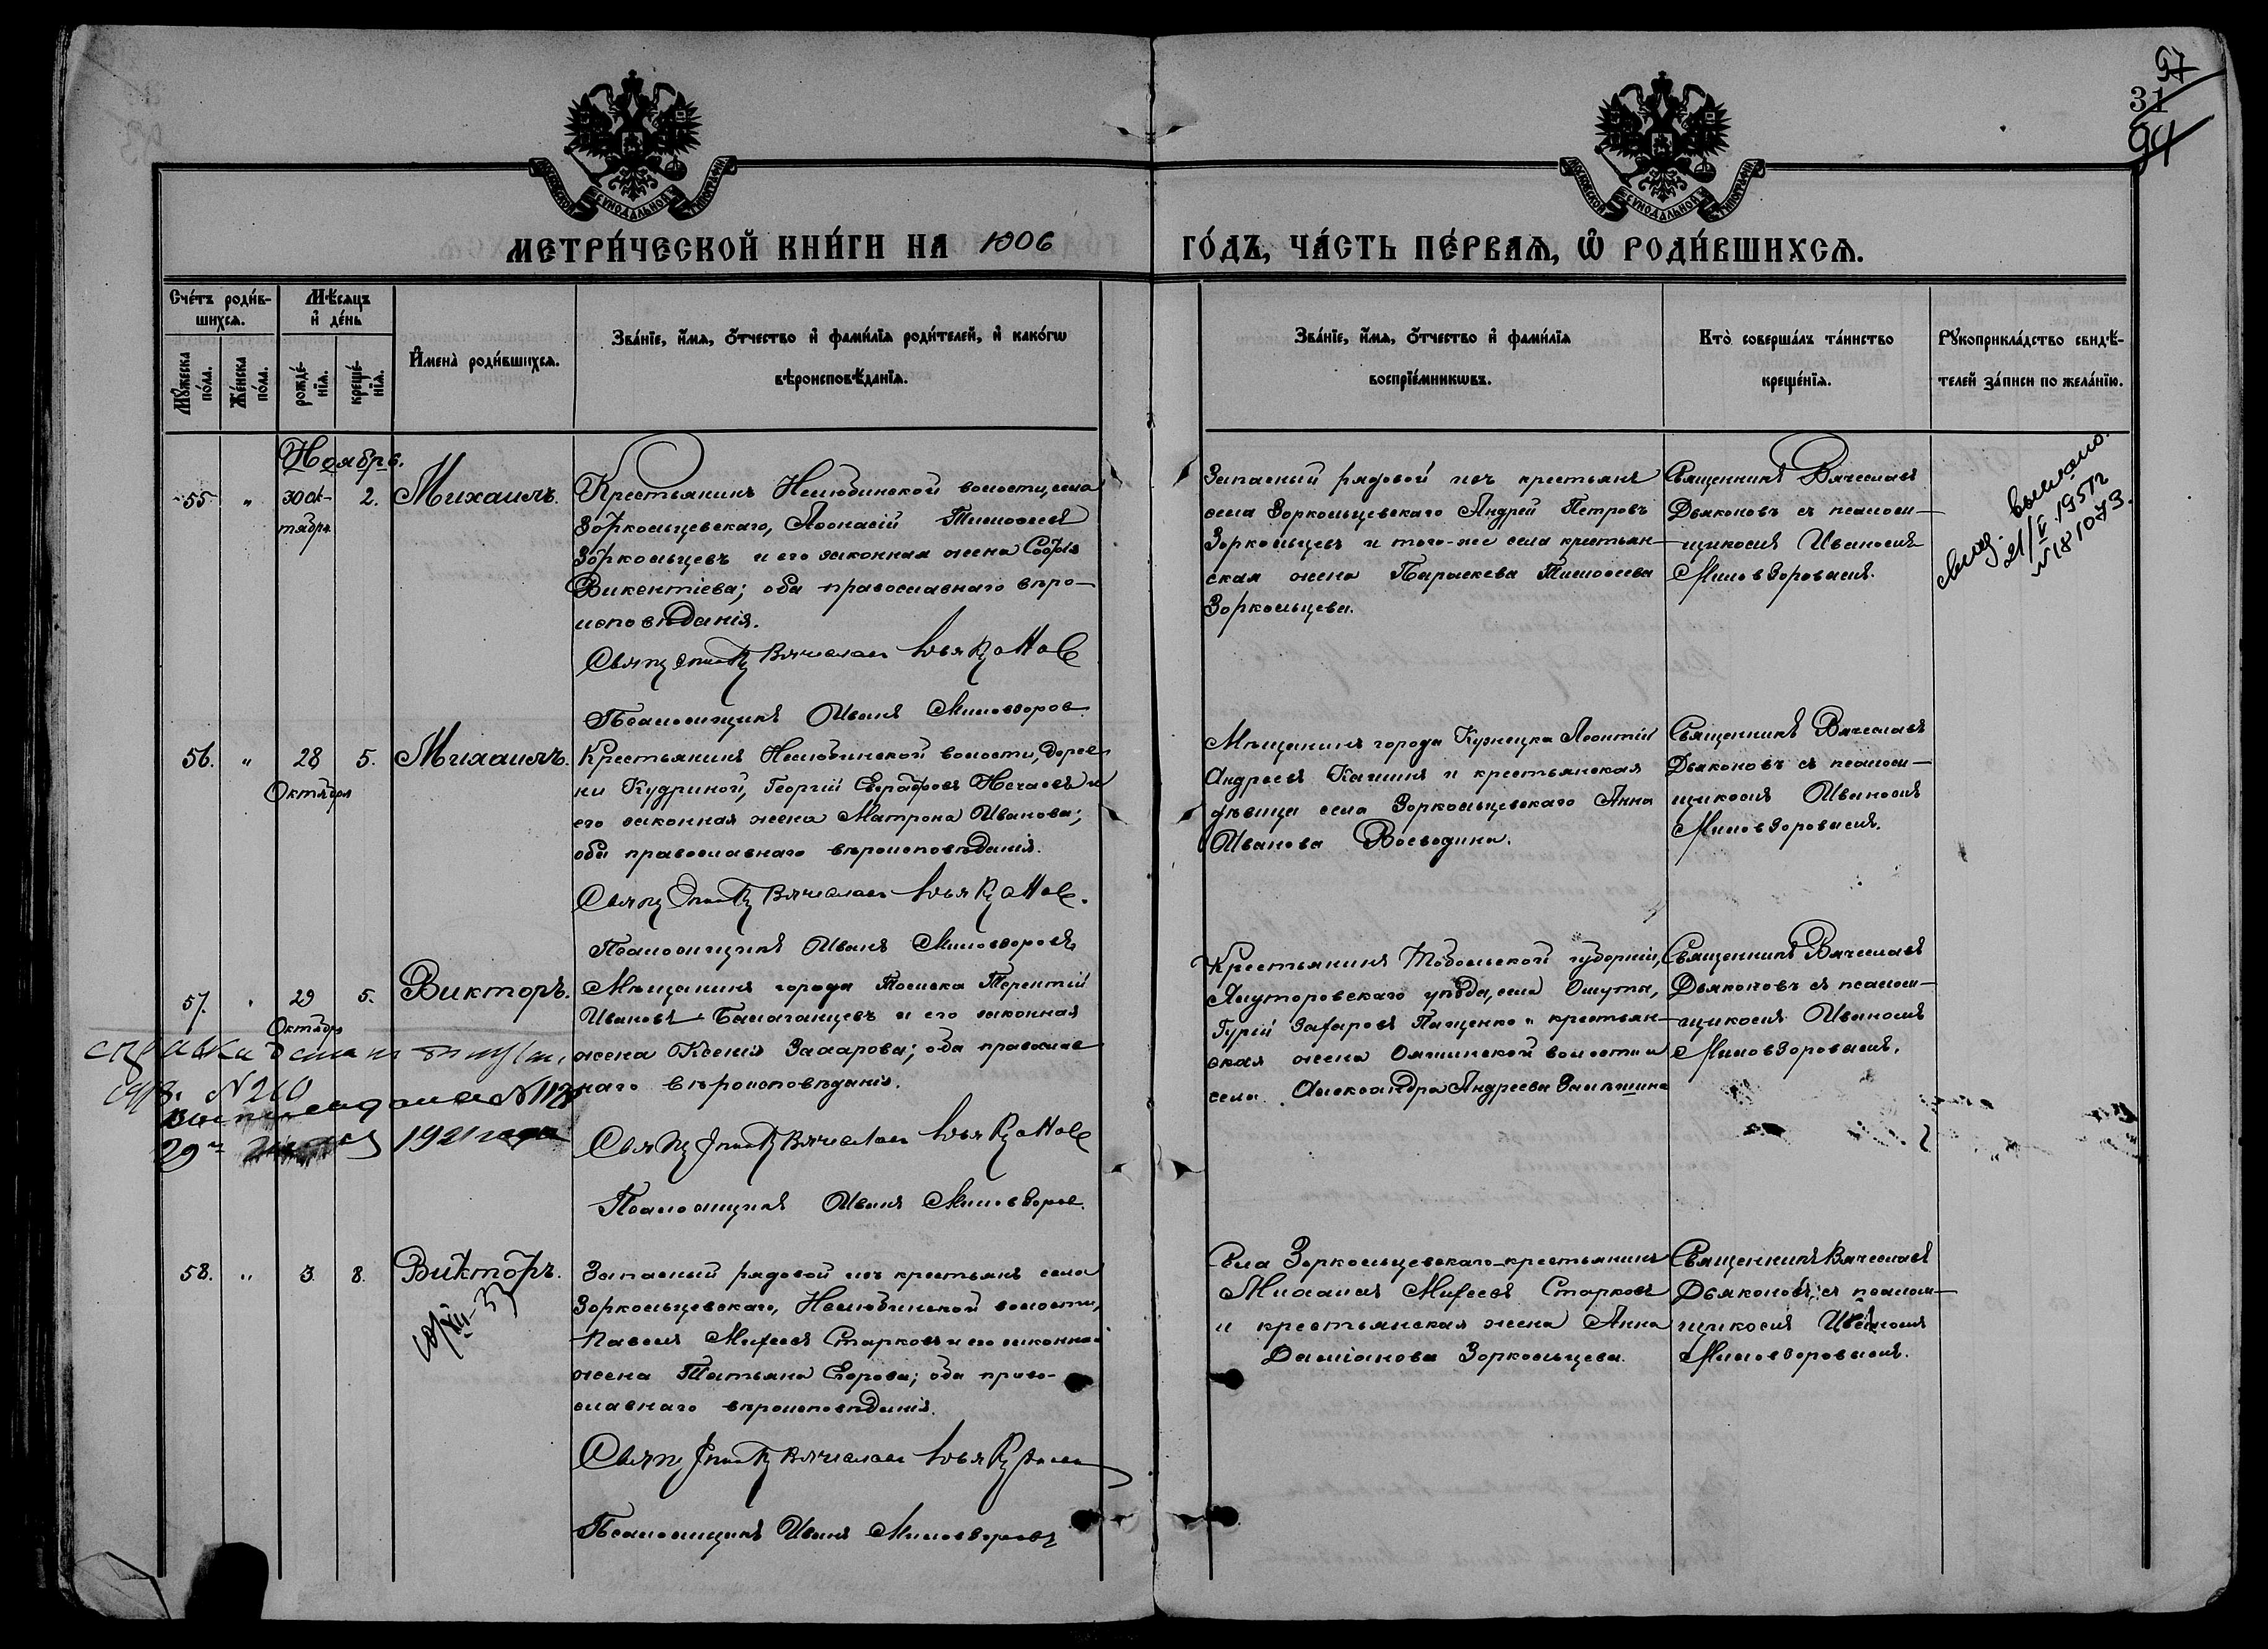 97
31
94
МОСКОВСКОЙ СУНОДАЛЬНОЙ ТИПОГРАФІИ
МОСКОВСКОЙ СУНОДАЛЬНОЙ ТИПОГРАФІИ
МЕТРИ́ЧЕСКОЙ КНИ́ГИ НА 1906 ГО́ДЪ, ЧА́СТЬ ПЕ́РВАѦ, Ѡ҆ РОДИ́ВШИХСѦ.
Сче́тъ роди́в-
шихсѧ.
Мꙋ́жеска по́ла.
Же́нска по́ла.
Мѣ́сѧцъ
и҆ де́нь
рожде́-
нїѧ.
креще́-
нїѧ.
И҆мена̀ роди́вшихсѧ.
Зва́нїе, и҆́мѧ, ѻ҆́тчество и҆ фами́лїѧ роди́телей, и҆ како́гѡ
вѣроисповѣ́данїѧ.
Зва́нїе, и҆́мѧ, ѻ҆́тчество и҆ фами́лїѧ
воспрїе́мникѡвъ.
Кто̀ соверша́лъ та́инство
креще́нїѧ.
Рꙋкоприкла́дство свидѣ́-
телей за́писи по жела́нїю.
Ноябрь.
55 " 30 ок-
тября 2. Михаилъ.
Крестьянинъ Нелюбинской волости, села
Зоркольцевскаго, Аѳонасій Тимоѳеевъ
Зоркольцевъ и его законная жена Софія
Викентіева; оба православнаго вѣро-
исповѣданія.
Священникъ Вячеславъ Дьяконов
Псаломщикъ Иванъ Миловзоров
Запасный рядовой изъ крестьянъ
села Зоркольцевскаго Андрей Петровъ
Зоркольцевъ и того-же села крестьян-
ская жена Параскева Тимоѳеева
Зоркольцева.
Священникъ Вячеславъ
Дьяконовъ съ псалом-
щикомъ Иваномъ
Миловзоровымъ.
выслано.
21/V 1951г
№ 181073.
56. " 28
Октября 5. Михаилъ.
Крестьянинъ Нелюбинской волости, дерев-
ни Кудриной, Георгій Евграфовъ Нечаевъ и
его законная жена Матрона Иванова;
оба православнаго вѣроисповѣданія.
Священникъ Вячеславъ Дьяконов.
Псаломщикъ Иванъ Миловзоровъ
Мѣщанинъ города Кузнецка Леонтій
Андреевъ Качинъ и крестьянская
дѣвица села Зоркольцевскаго Анна
Иванова Воеводина.
Священникъ Вячеславъ
Дьяконовъ съ псалом-
щикомъ Иваномъ
Миловзоровымъ.
57. " 29
Октября 5. Викторъ.
Мѣщанинъ города Томска Терентій
Ивановъ Балаганцевъ и его законная
жена Ксенія Захарова; оба православ-
наго вѣроисповѣданія.
Священникъ Вячеславъ Дьяконов
Псаломщикъ Иванъ Миловзоров.
Крестьянинъ Тобольской губерніи,
Ялуторовскаго уѣзда, села Ошуты,
Гурій Захаровъ Пащенко и крестьян-
ская жена
села Александра Андреева
Священникъ Вячеславъ
Дьяконовъ съ псалом-
щикомъ Иваномъ
Миловзоровымъ.
справка дана
№ 260
№ 1128
29 1921 года
58. " 3 8. Викторъ.
Запасный рядовой изъ крестьянъ села
Зоркольцевскаго, Нелюбинской волости,
Павелъ Михеевъ Старковъ и его законная
жена Татьяна Егорова; оба право-
славнаго вѣроисповѣданія.
Священникъ Вячеславъ
Псаломщикъ Иванъ Миловзоровъ
Села Зоркольцевскаго крестьянинъ
Михаилъ Михеевъ Старковъ
и крестьянская жена Анна
Даміанова Зоркольцева.
Священникъ Вячеславъ
Дьяконовъ съ псалом-
щикомъ Иваномъ
Миловзоровымъ.